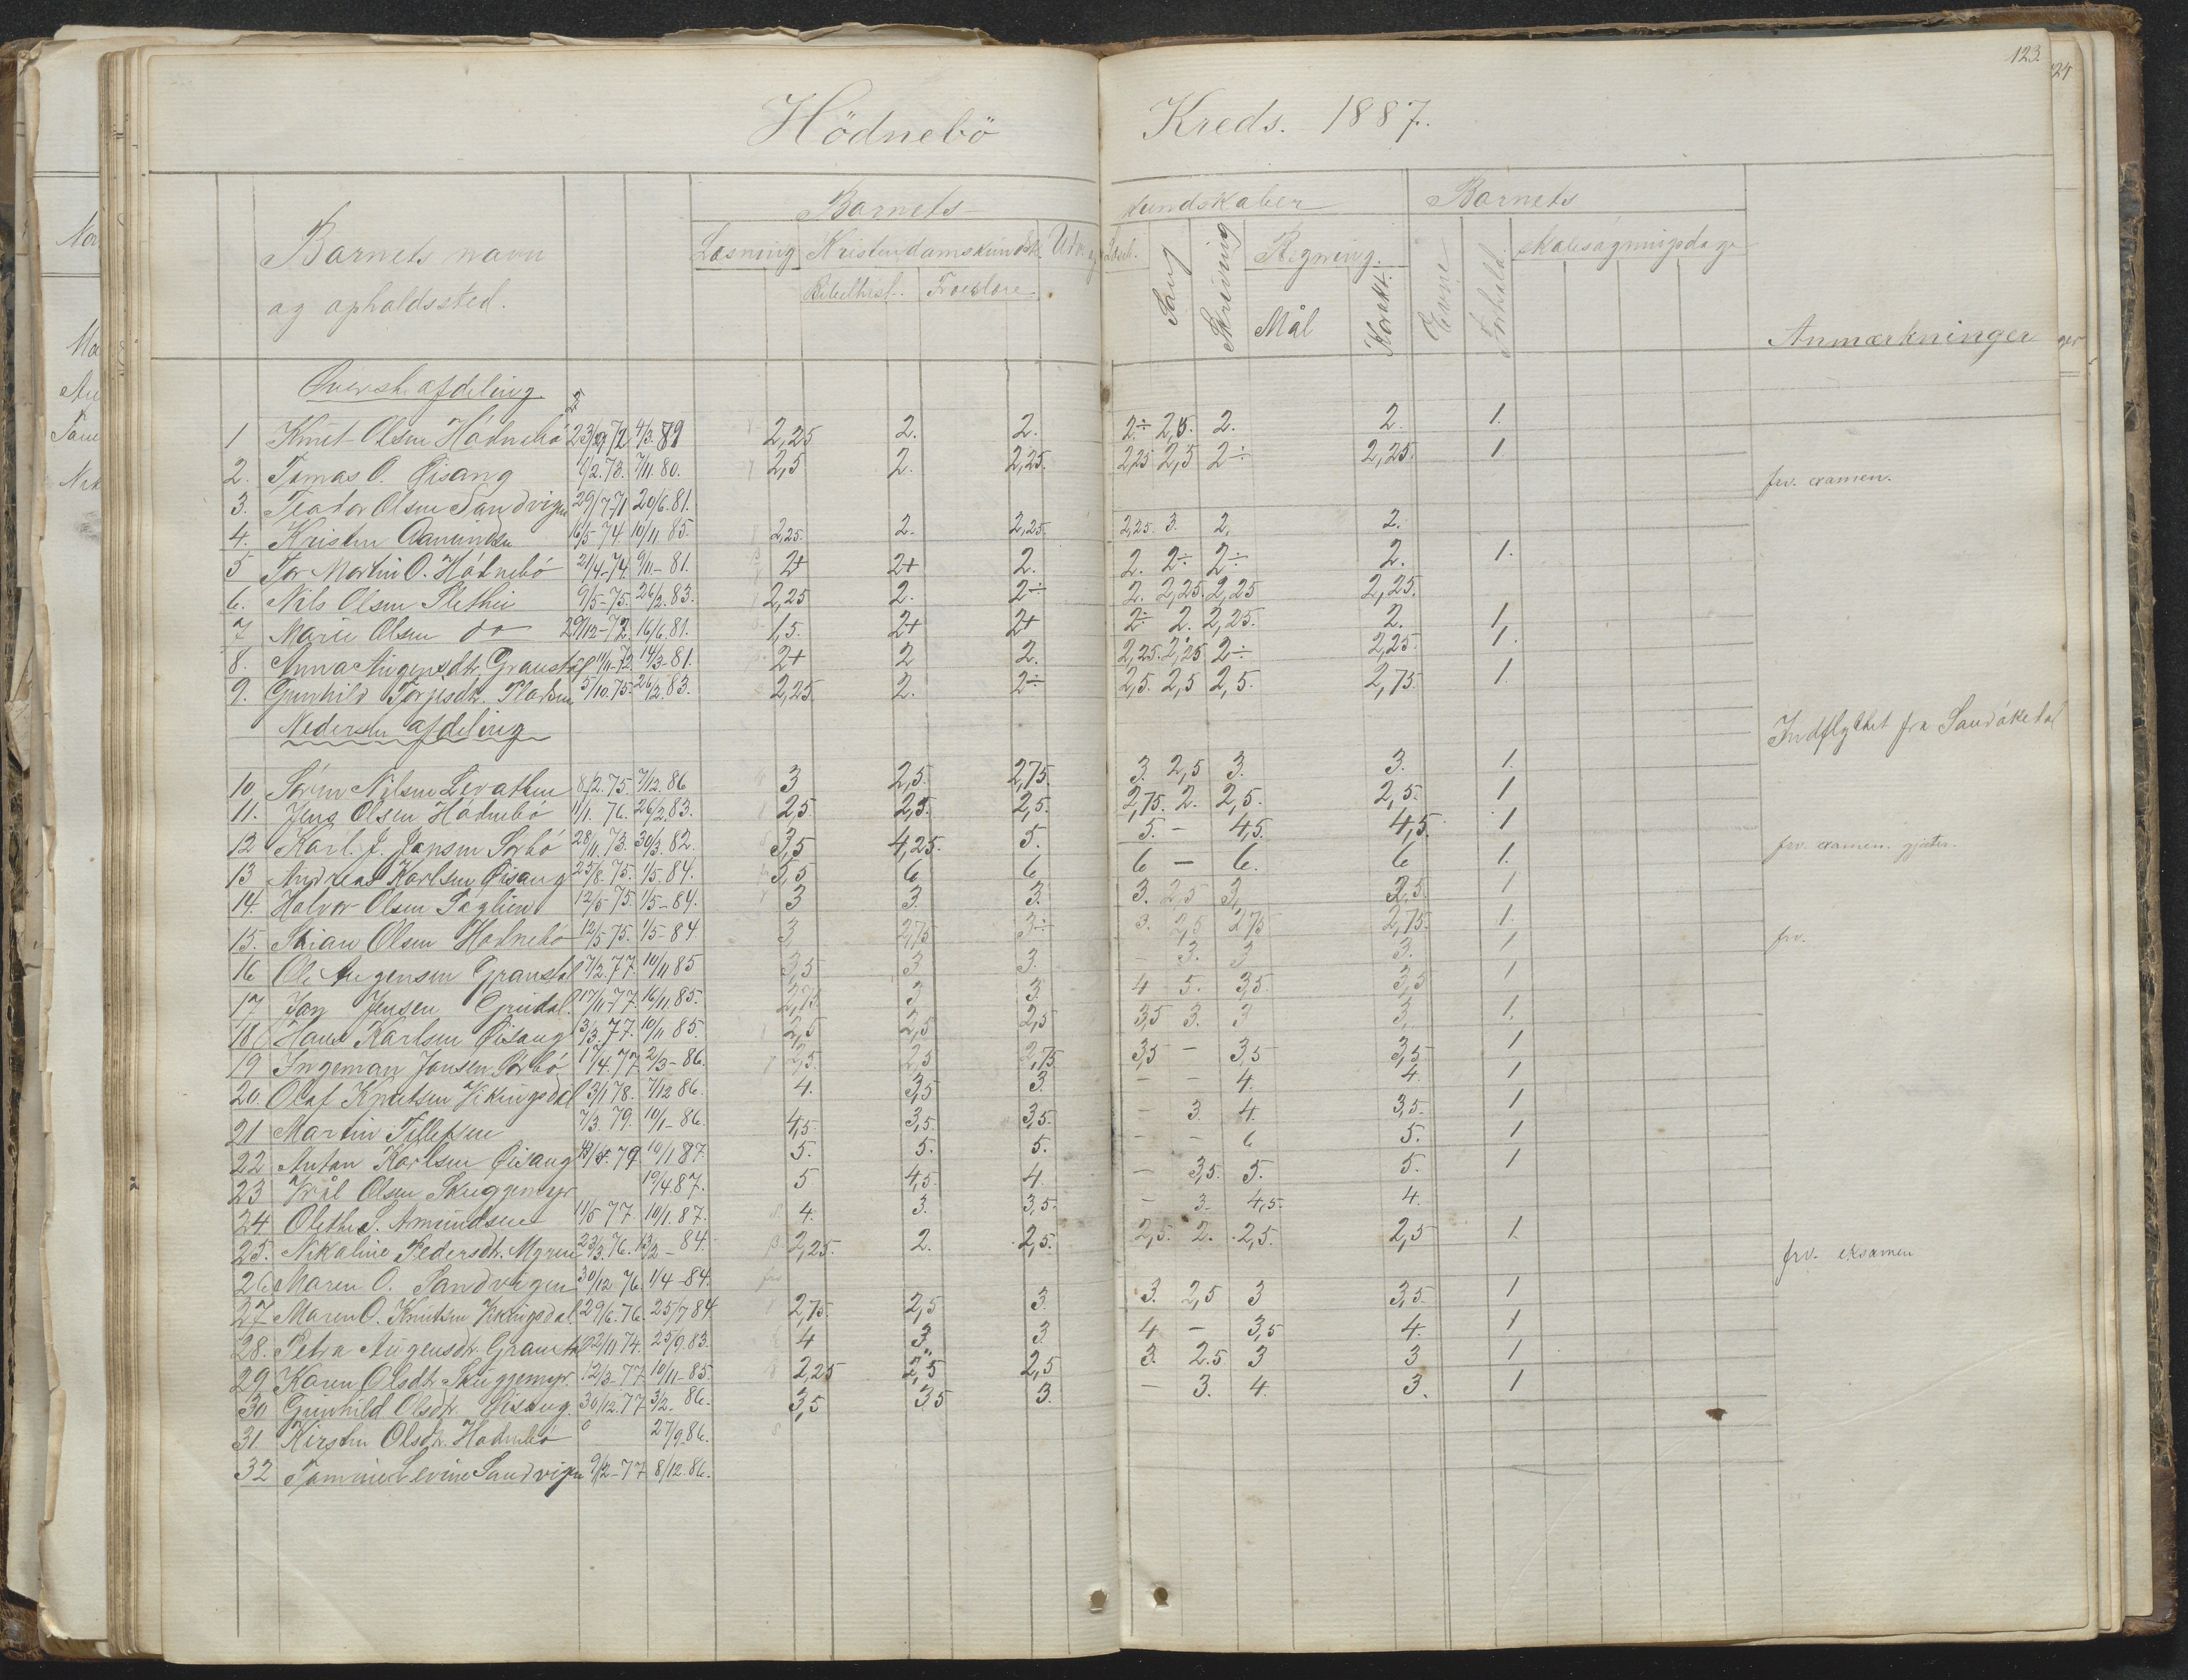 123.
24
Hödnebö Kreds. 1887.
Barnets kundskaber Barnets
Barnets navn
og opholdssted.
Læsning Kristendomskundsk. Udv. og Sang Skrivning Regning. Evne Forhold. skolesøgningsdage
Bibelhist. Troeslære Mål Karakt.
Anmærkninger
Øverste afdeling
1 Knut Olsen Hödnebö 23/9 72 4/3. 81 2,25 2. 2. 2÷ 2,5. 2. 2. 1.
2. Tomas O. Øisang 9/2.73. 7/11 80. 2,5 2. 2,25. 2,25 2,5 2÷ 2,25. 1
3. Teodor Olsen Sandvigen 29/7-71 20/6.81. frv. examen.
4. Kristen Aamundsen 16/5 74. 10/11.85. 2,25. 2. 2,25. 2,25. 3. 2. 2.
5 Tor Martin O. Hödnebö 21/4-74. 9/11-81. 2+ 2+ 2. 2. 2÷ 2÷ 2. 1.
6. Nils Olsen Slethei 9/5-75. 26/2.83. 2,25 2. 2÷ 2. 2,25. 2,25 2,25.
7 Marie Olsen do 29/12-72. 16/6.81. 1,5. 2+ 2+ 2÷ 2. 2,25. 2. 1
8. Anna Augensdtr. Granstöl 11/11-72. 14/3-81. 2+ 2 2. 2,25. 2,25 2÷ 2,25. 1.
9. Gunhild Torjesdtr. 5/10.75. 26/2.83. 2,25. 2. 2÷ 2,5. 2,5 2,5. 2,75. 1
Nederste afdeling
10 Sörin Nilsen 8/2.75. 7/12.86 3 2,5. 2,75. 3. 2,5 3. 3. 1. Indflyttet fra Sandökedal
11. Jens Olsen Hödnebö 11/1. 76. 26/2.83. 2,5. 2,5. 2,5. 2,75. 2. 2,5. 2,5. 1
12 Karl. J. Jansen Sörbö 28/11.73. 30/3.82. 3,5 4,25. 5. 5. - 4,5. 4,5. 1
13 Andreas Karlsen Øisang 25/8.75. 1/5.84. 5,5 6 6 6 - 6. 6 1. frv. examen. gjæter.
14. Halvor Olsen 12/5 75. 1/5-84. 3 3. 3. 3. 2,5 3. 2,5. 1
15. Stian Olsen Hödnebö 12/5 75. 1/5-84 3 2,75 3÷ 3. 2,5 2,75 2,75. 1.
16 Ole Augensen Granstöl 17/2.77. 10/11 85 3,5 3 3. - 3. 3 3. 1 frv.
17 Jens Jensen 17/11-77. 16/11.85. 2,75. 3 3. 4 5. 3,5. 3,5 1
18 Hans Karlsen Øisang 13/3.77. 10/11 85. 2,5 2,5 2,5 3,5 3. 3 3. 1.
19 Ingeman Jansen Sörbö 17/4.77 2/3-86. 2,5. 2,5 2,75 3,5 - 3,5 3,5 1
20. Olaf Knutsen Vikingsdal 3/1 78. 7/12 86. 4. 3,5 3. - - 4. 4. 1
21 Martin Tellefsen 7/3.79. 10/1-86. 4,5. 3,5. 3,5. - 3. 4. 3,5. 1
22 Anton Karlsen Øisang 79 10/1 87. 5. 5. 5. - - 6 5. 1
23 Kröl Olsen Skuggemyr 19/4.87. 5 4,5. 4. - 3,5. 5. 5. 1
24 Olethe S. Amundsen 11/5 77. 10/1.87. 4. 3. 3,5. - 3. 4,5. 4.
25. Nikoline Pedersdtr. Myren 23/3.76. 13/2-84. 2,25. 2. 2,5. 2,5. 2. 2,5. 2,5 1.
26 Maren O. Sandvigen 30/12 76. 1/4-84. frv. frv. eksamen
27 Maren O. Knutsen Vikingsdal 29/6.76. 25/7 84 2,75. 2,5 3. 3. 2,5 3 3,5. 1
28. Petra Augensdtr. Granstöl 22/11 74. 25/9.83. 4 3. 3. 4 - 3,5 4. 1
29 Karen Olsdtr. Skuggemyr. 12/3-77. 10/11-85. 2,25 2,5 2,5 3. 2.5 3 3 1
30 Gunhild Olsdtr. Øisang. 30/12.77 3/2-86. 3,5 3,5 3. - 3. 4. 3. 1
31. Kirsten Olsdtr. Hödnebö 27/9.86.
32 Tomine Levine Sandvigen 9/12-77 8/12.86.